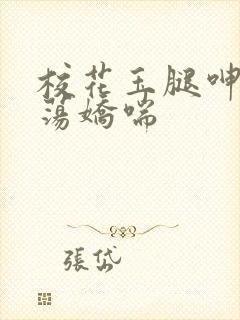 校花玉腿呻
蕩嬌喘
張岱